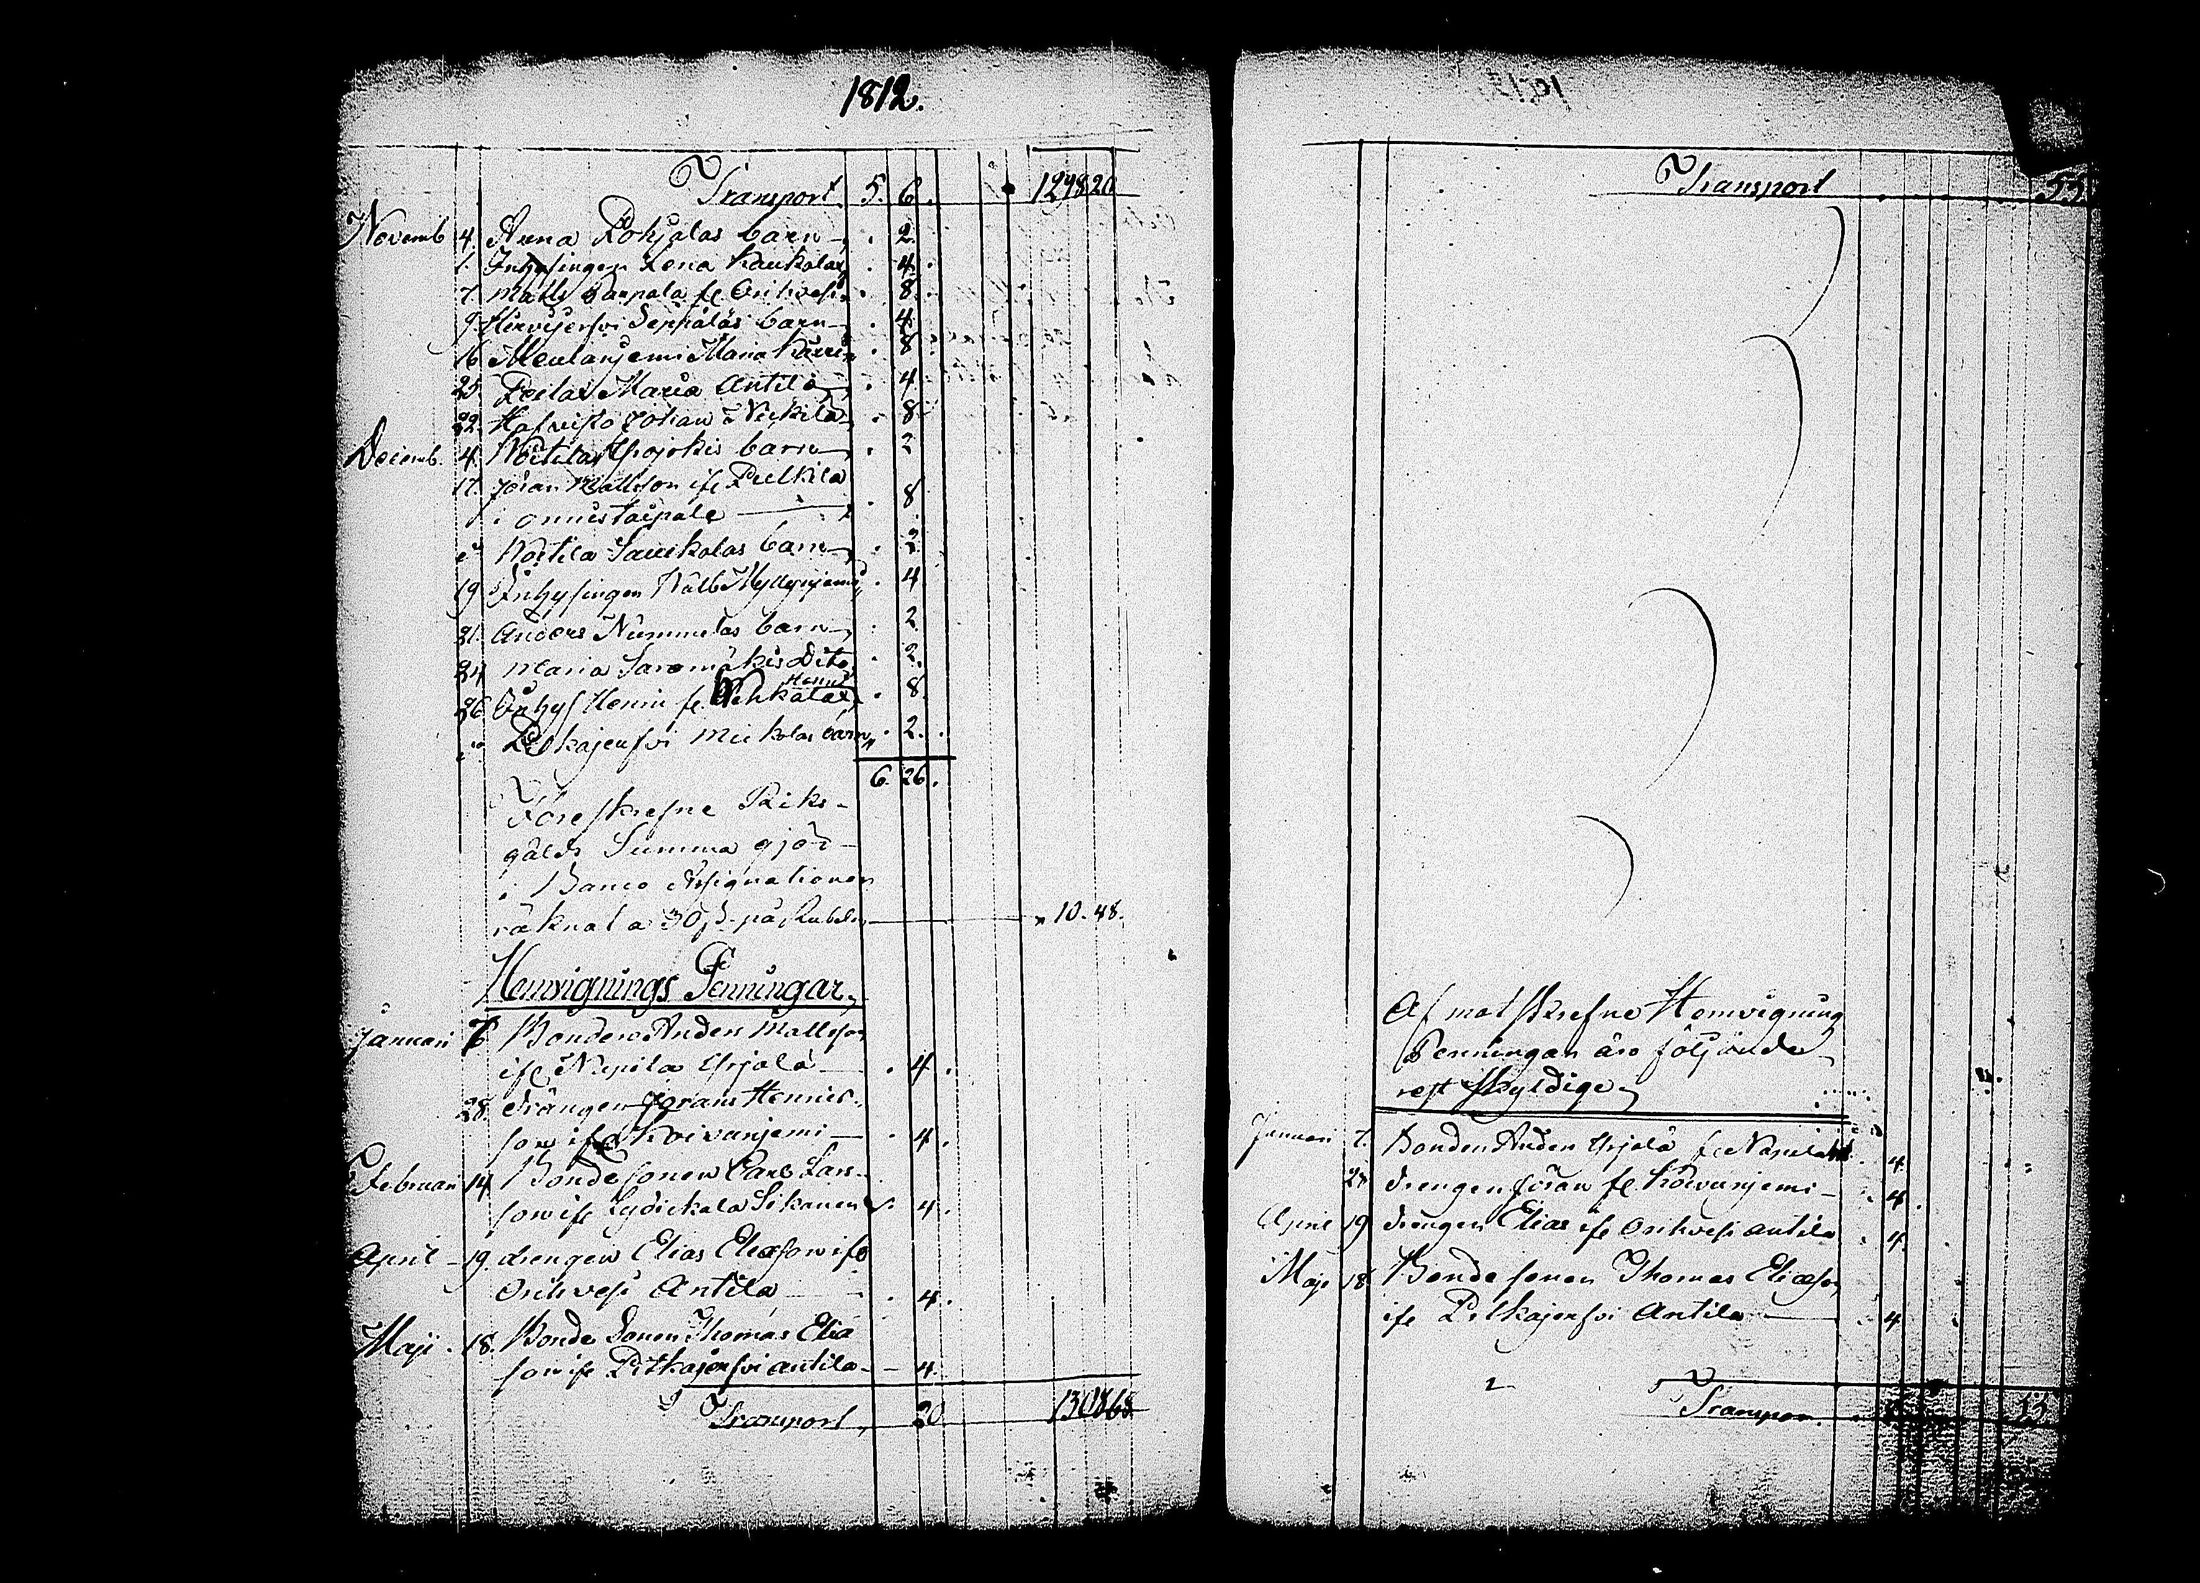 1812.
Transport 5. 6. 129820
Novemb 4. Anna Pohjolas barn . 2.
1. Inhysingen Lena Kaukolas . 4.
7. Matts Parpala fr. Orihvesi . 8.
9. Hirvijerfvi Seppäläs barn . 4.
16 Meulanjemi Maria . 8.
25. Maria Antila . 4.
22. Johan Nickilä . 8.
Decemb. 4. barn . 2
17. Jöran Mattsson ifr
i Onnistaipale . 8
Sauckolas barn . 2.
19 Inhysingen . 4
21. Anders Nummelas barn . 2.
24 Maria Saromäkis Dito . 2.
26. Inhys Henric fr. . 8.
Pitkäjerfvi Mickolas barn . 2.
6. 26.
Föreskrefne Riks-
gälds Summa gjör
i Banco Assignationer
räknat a 30 ß på Rubeln 10. 48.
Hemvignings Penningar
Januari 7 Bonden Anders Mattsson
ifr Napila Yrjölä . 4.
28. drängen Jöran Henrics
son ifr Koivunjemi . 4.
Februari 14 Bondesonen Carl Lars-
son ifr Lydickala Sikanen . 4.
April 19. drengen Elias Eliæson ifr
Orihvesi Antila . 4.
Maji . 18. Bonde Sonen Thomas Eliæ
son ifr Pitkäjerfvi Antila 4.
Transport 20 130868
Transport 55
Af motskrefne Hemvigning
Penningar äro följande
restskyldige
Januari 7. Bonden Anders Yrjölä fr Napila 4
28 drengen Jöran fr Koivunjemi 4.
April 19 drengen Elias ifr Orihvesi Antila 4.
Maji 18 Bonde sonen Thomas Eliæson
ifr Pitkäjerfvi Antila 4
Transpor. 55